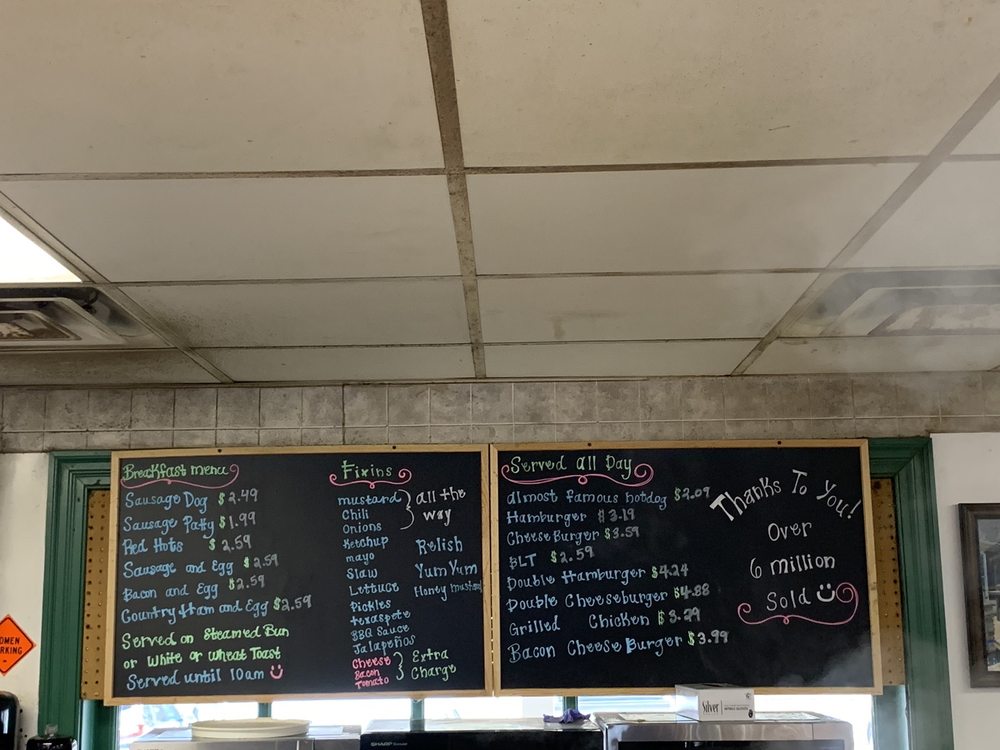 Breakfast menu
Sausage Dog $2.49
Sausage Patty $1.99
Red Hots $2.59
Sausage and Egg $2.59
Bacon and Egg $2.59
Country Ham and Egg $2.59
Served on Steamed Bun
or White or Wheat Toast
Served until 10am
Fixins
mustard
Chili
Onions
all the
way
Ketchup
mayo
Slaw
Lettuce
Pickles
texaspete
BBQ Sauce
Jalapeños
Relish
YumYum
Honey mustard
Cheese
Bacon
Tomato
Extra
Charge
Served all Day
almost famous hotdog $2.09
Hamburger $3.19
Cheese Burger $3.59
BLT $2.59
Double Hamburger $4.24
Double Cheeseburger $4.88
Grilled Chicken $3.29
Bacon Cheese Burger $3.99
Thanks To You!
Over
6 million
Sold
OMEN
RKING
SHARP
Silver